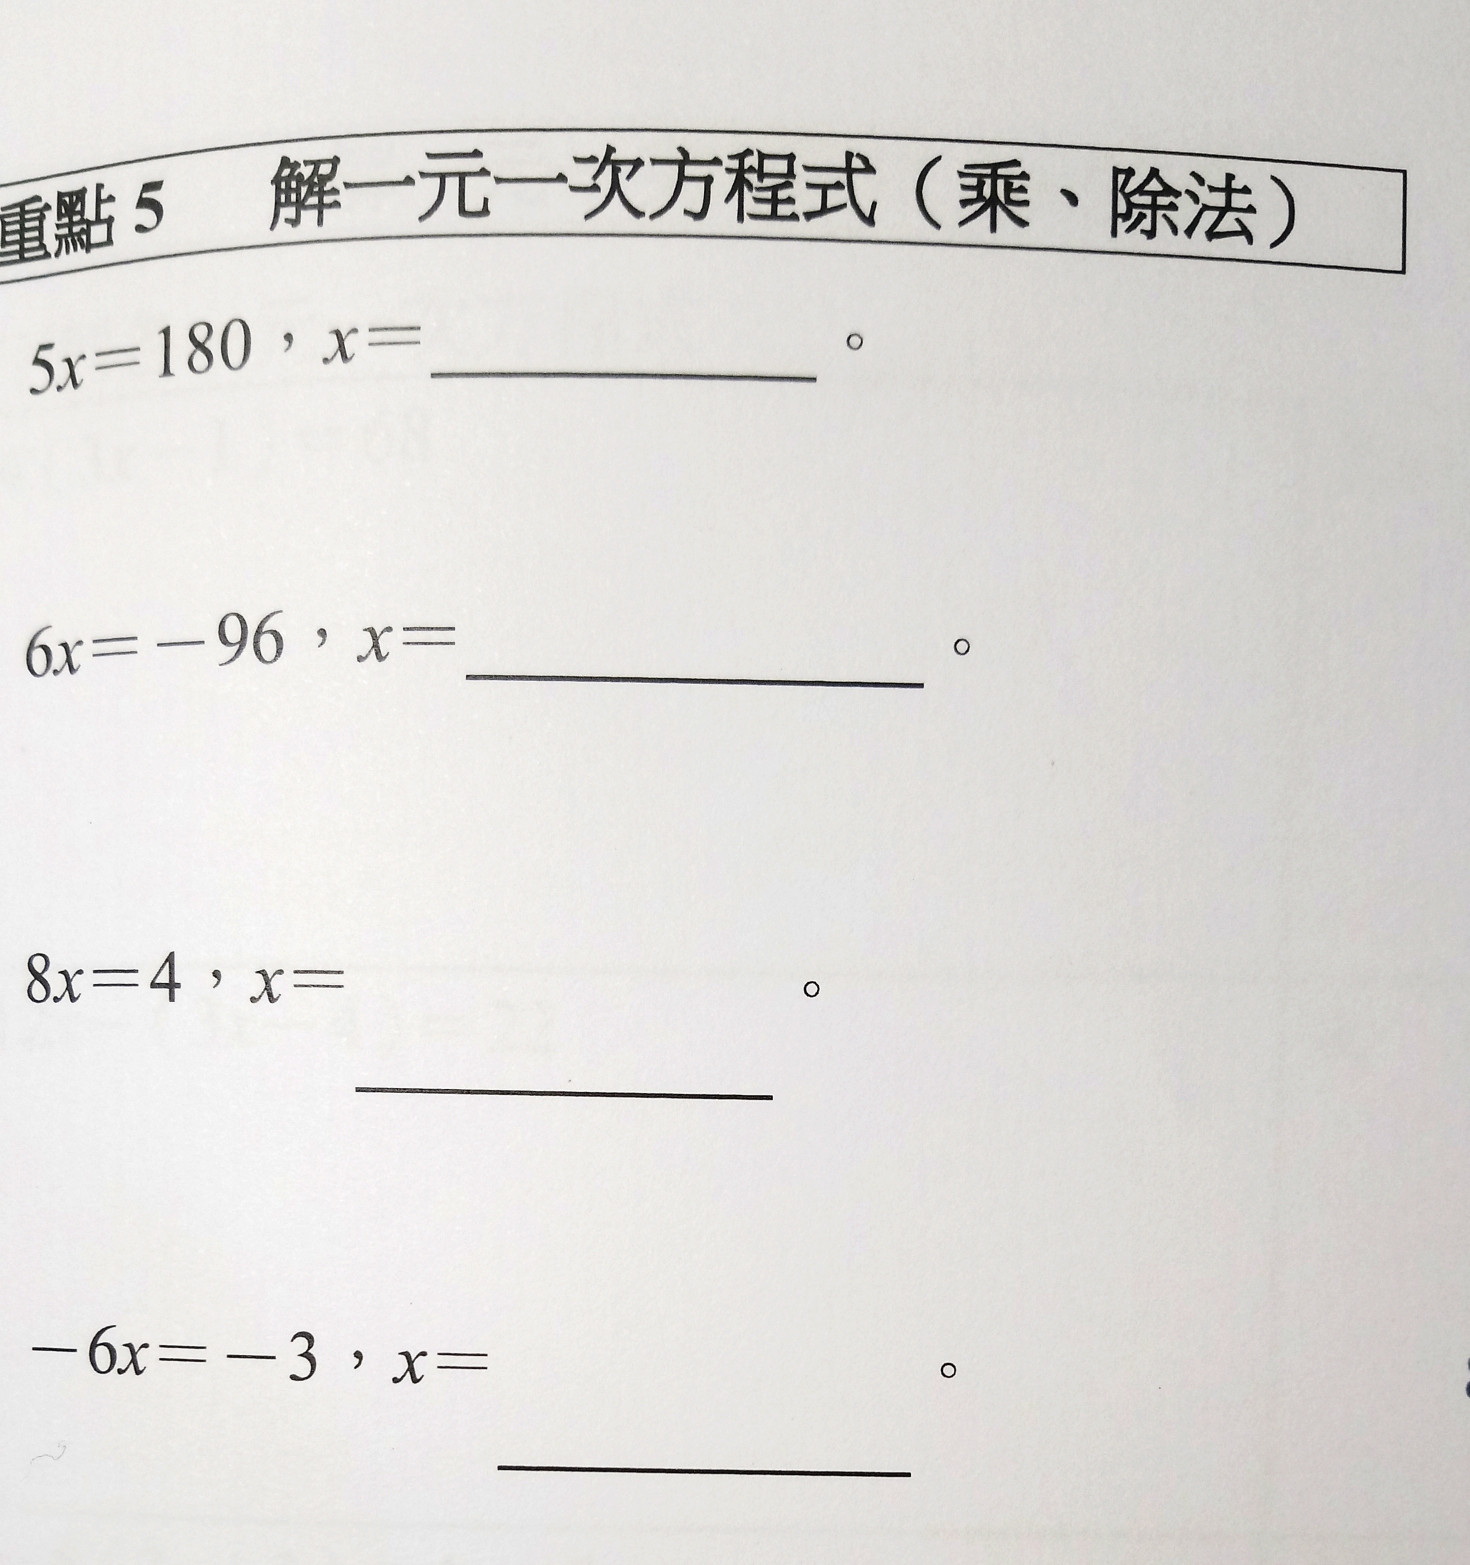 重點5 解一元一次方程式（乘、除法）
5x＝180，x＝＿＿＿＿＿＿。
6x＝－96，x＝＿＿＿＿＿＿。
8x＝4，x＝＿＿＿＿＿＿。
－6x＝－3，x＝＿＿＿＿＿＿。